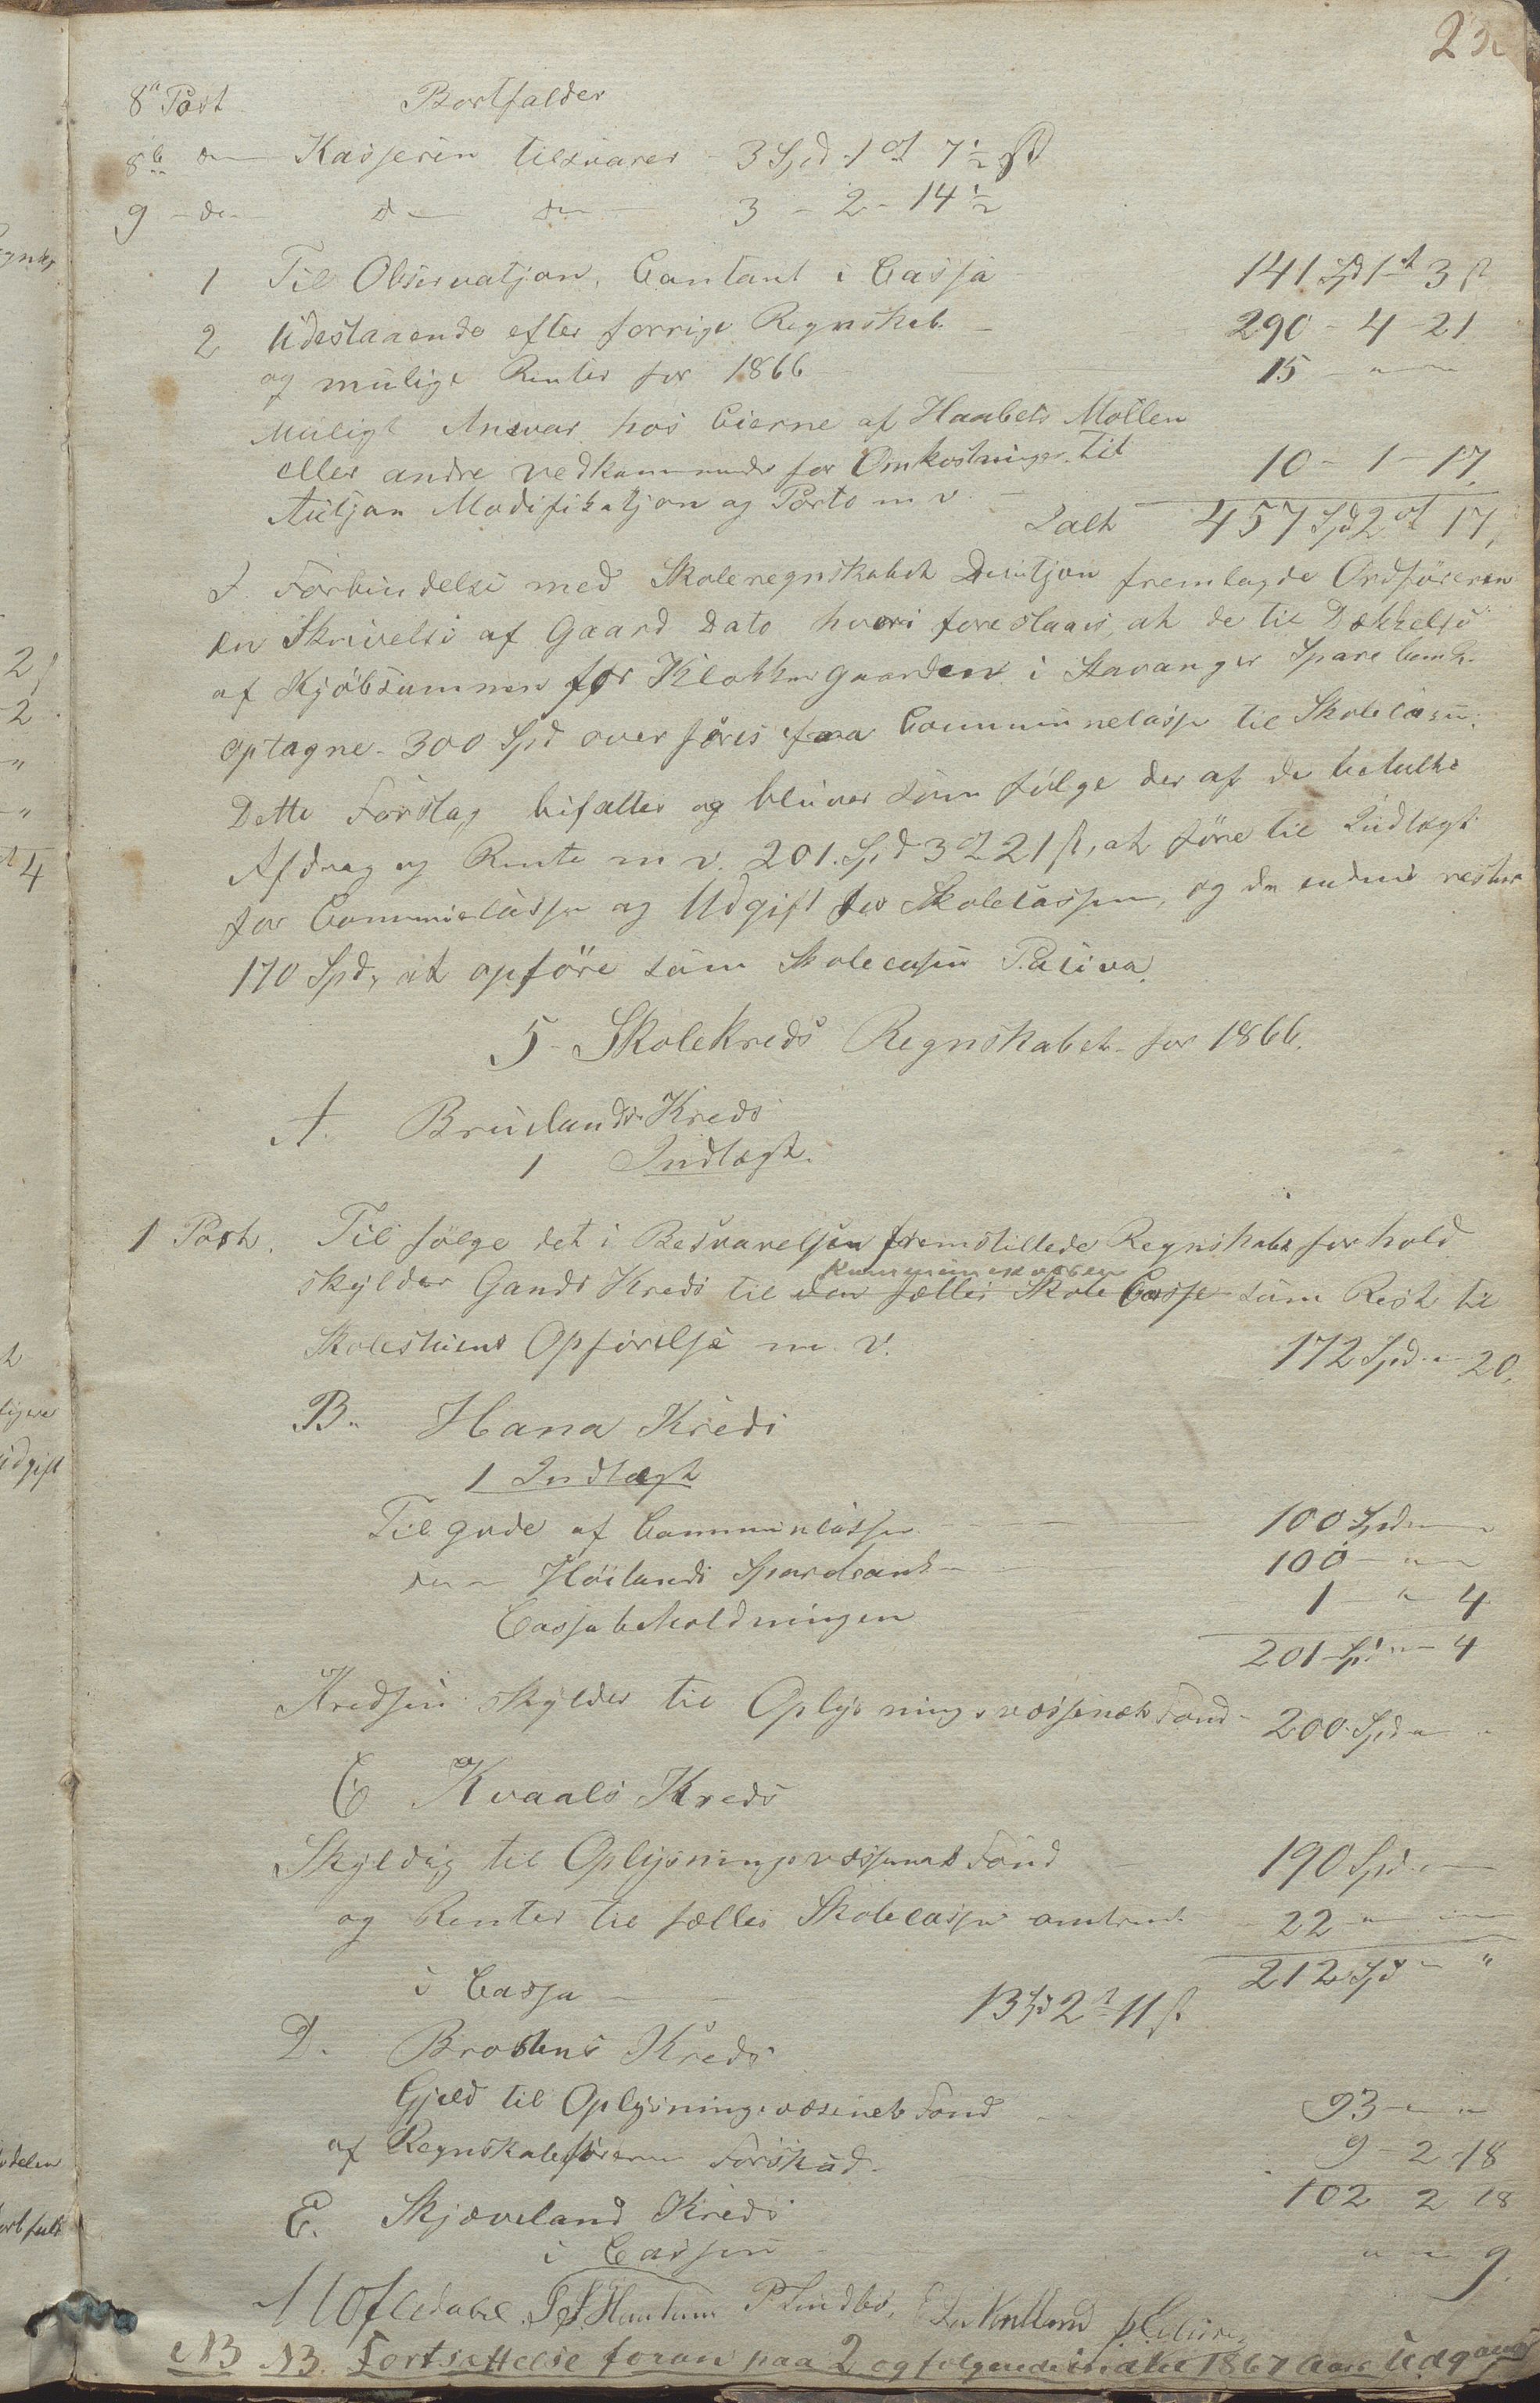 8a Post Bortfalder
8b do Kasseren tilsvarer 3 Spd 1 ort 7½ s
9 do do do 3 - 2 - 14½
1 Til Observatjon, Contant i Cassa 141 Spd 1 ort 3 s
2 Udestaaende efter forrige Regnskab. 290 - 4 - 21
og mulige Renter for 1866 15 - " -
Muligt Ansvar hos Eierne af Haabets Møllen
eller andre vedkommende for Omkostninger til
Modifikatjon og Porto m v. 10 - 1 - 17
Ialt 457 Spd 2 ort 17,
I Forbindelse med Skoleregnskabet Desitjon fremlagde Ordføreren
en Skrivelse af Gaard Dato hvori foreslaaes, at de til Dækkelse
af Kjøbsummen for Klokkergaarden i Stavanger Sparebank
optagne 300 Spd overføres fra Communecasse til Skolecassen.
Dette Forslag bifaltes og bliver som følge der af de betalte
Afdrag og Rente m v. 201 Spd 3 ort 21 s, at føre til Indtægt
for Communecassen og Udgift for Skolecassen, og de endnu rester
170 Spd, at opføre som Skolecassens Passiva.
5 - Skolekreds Regnskabet for 1866.
A. Brueland Kreds
1 Indtægt.
1 Post. Til følge det i Besvarelsen fremstillede Regnskabs forhold
Kommunekassen
skylder Gands Kreds til den fælles Skole Casse som Rest til
Skolestuens Opførelse m. v. 172 Spd " 20.
B. Hana Kreds
1 Indtægt
Tilgode af Communecassen 100 Spd " "
do Høilands Sparebank 100 - " "
Cassabeholdningen 1 - " 4
201 Spd " - 4
Kredsen skylder til Oplysningsvæsenets Fond 200 Spd " "
C Kvaals Kreds
Skyldig til Oplysningsvæsenets Fond 190 Spd " -
og Renter til fælles Skolecasse omtrent 22 " -
212 Spd " "
i Cassa 13 Spd 2 ort 11 s
D. Brostens Kreds
Gjæld til Oplysningsvæsenets Fond 93 - " "
af Regnskabsføreren Forskud 9 - 2 - 18
102 2 18
E. Skjæveland Kreds
i Cassen " " 9.
P Lindbo,
NB NB. Fortsættelse foran paa 2 og følgende 1867 Aars Udgang